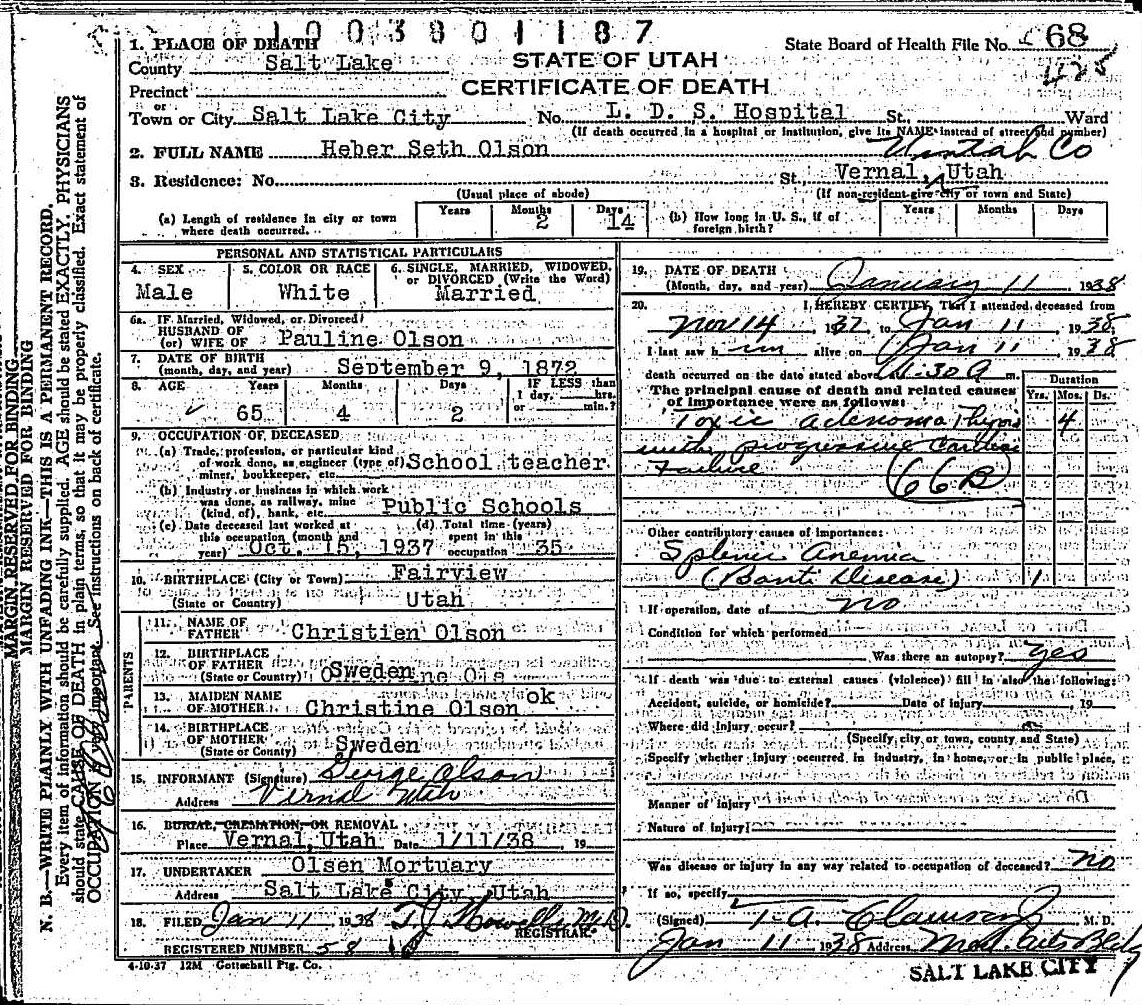 1003801187
1. PLACE OF DEATH
County Salt Lake
STATE OF UTAH
CERTIFICATE OF DEATH
State Board of Health File No. 68
425
Precinct
or
Town or City Salt Lake City No. L. D. S. Hospital St. Ward
(If death occurred in a hospital or institution, give its NAME instead of street and number)
2. FULL NAME Heber Seth Olson
Uintah Co
3. Residence: No. St. Vernal, Utah
(Usual place of abode) (If non-resident give city or town and State)
(a) Length of residence in city or town where death occurred. Years Months 2 Days 14
(b) How long in U. S., if of foreign birth? Years Months Days
PERSONAL AND STATISTICAL PARTICULARS
4. SEX Male
5. COLOR OR RACE White
6. SINGLE, MARRIED, WIDOWED, or DIVORCED (Write the Word) Married
6a. IF Married, Widowed, or Divorced
HUSBAND OF
(or) WIFE OF Pauline Olson
7. DATE OF BIRTH
(month, day, and year) September 9, 1872
8. AGE Years 65 Months 4 Days 2 IF LESS than 1 day, hrs. or min.?
9. OCCUPATION OF DECEASED
(a) Trade, profession, or particular kind
of work done, as engineer (type of) School teacher
miner, bookkeeper, etc.
(b) Industry or business in which work
was done, as railway, mine Public Schools
(kind of), bank, etc.
(c) Date deceased last worked at
this occupation (month and
year) Oct. 15, 1937
(d) Total time (years)
spent in this
occupation 35
10. BIRTHPLACE (City or Town) Fairview
(State or Country) Utah
PARENTS
11. NAME OF
FATHER Christien Olson
12. BIRTHPLACE
OF FATHER
(State or Country) Sweden
13. MAIDEN NAME
OF MOTHER Christine Olson ok
14. BIRTHPLACE
OF MOTHER
(State or County) Sweden
15. INFORMANT (Signature) George Olson
Address Vernal Utah
16. BURIAL, CREMATION OR REMOVAL
Place Vernal, Utah Date 1/11/38, 19
17. UNDERTAKER Olsen Mortuary
Address Salt Lake City, Utah
18. FILED Jan 11 1938 T. J. Howells M. D.
REGISTRAR
REGISTERED NUMBER 58
4-10-37 12M Gottschall Ptg. Co.
19. DATE OF DEATH
(Month, day, and year) January 11 1938
20. I HEREBY CERTIFY, That I attended deceased from
Nov 14 1937, to Jan 11, 1938,
I last saw him alive on Jan 11, 1938
death occurred on the date stated above 30 A m.
The principal cause of death and related causes
of importance were as follows:
Duration
Yrs. Mos. Ds.
Toxic adenoma Thyroid 4
with progressive Cardiac
Failure
66B
Other contributory causes of importance:
Splenic anemia
(Banti Disease) 1
If operation, date of no
Condition for which performed
Was there an autopsy? yes
If death was due to external causes (violence) fill in also the following:
Accident, suicide, or homicide? Date of injury, 19
Where did injury occur?
(Specify city or town, county and State)
Specify whether injury occurred in industry, in home, or in public place,
Manner of injury
Nature of injury
Was disease or injury in any way related to occupation of deceased? no
If so, specify
(Signed) T. A. Clawson Jr M. D.
Jan 11 1938 Address Med. Arts Bldg
SALT LAKE CITY
MARGIN RESERVED FOR BINDING
MARGIN RESERVED FOR BINDING
N. B.—WRITE PLAINLY WITH UNFADING INK—THIS IS A PERMANENT RECORD.
Every item of information should be carefully supplied. AGE should be stated EXACTLY. PHYSICIANS
should state CAUSE OF DEATH in plain terms, so that it may be properly classified. Exact statement of
OCCUPATION is very important. See instructions on back of certificate.